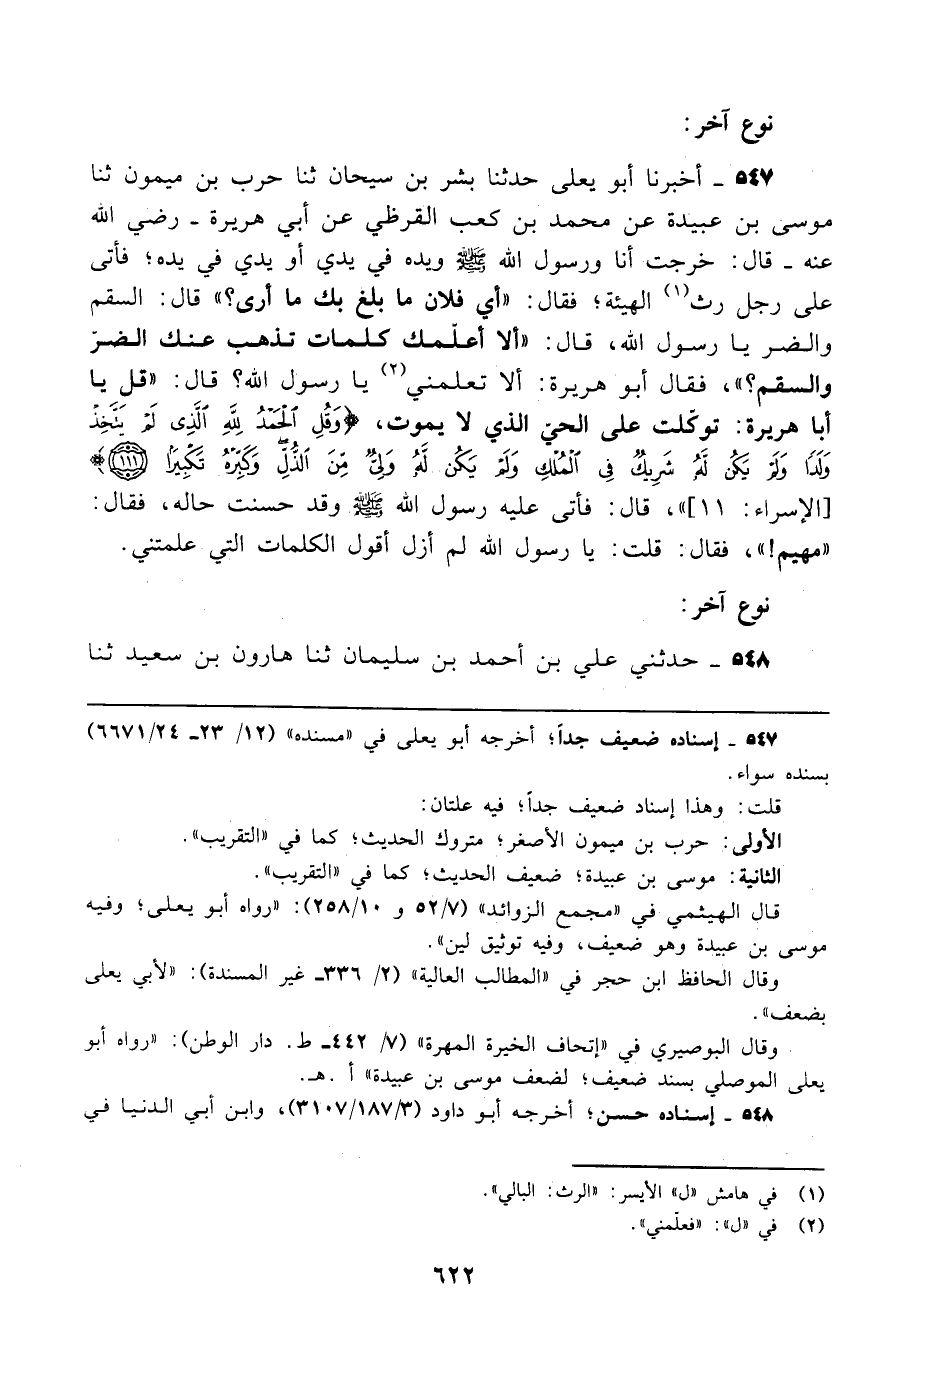 نوع آخر:
٥٤٧ ـ أخبرنا أبو يعلى حدثنا بشر بن سيحان ثنا حرب بن ميمون ثنا
موسى بن عبيدة عن محمد بن كعب القرظي عن أبي هريرة ـ رضي الله
عنه ـ قال: خرجت أنا ورسول الله ﷺ ويده في يدي أو يدي في يده؛ فأتى
على رجل رث(١) الهيئة؛ فقال: «أي فلان ما بلغ بك ما أرى؟» قال: السقم
والضر يا رسول الله، قال: «ألا أعلّمك كلمات تذهب عنك الضرّ
والسقم؟»، فقال أبو هريرة: ألا تعلمني(٢) يا رسول الله؟ قال: «قل يا
أبا هريرة: توكّلت على الحيّ الذي لا يموت، ﴿وَقُلِ ٱلْحَمْدُ لِلَّهِ ٱلَّذِى لَمْ يَتَّخِذْ
وَلَدًا وَلَمْ يَكُن لَّهُ شَرِيكٌ فِى ٱلْمُلْكِ وَلَمْ يَكُن لَّهُ وَلِىٌّ مِّنَ ٱلذُّلِّ وَكَبِّرْهُ تَكْبِيرًا (١١١)﴾
[الإسراء: ١١]»، قال: فأتى عليه رسول الله ﷺ وقد حسنت حاله، فقال:
«مهيم!»، فقال: قلت: يا رسول الله لم أزل أقول الكلمات التي علمتني.
نوع آخر:
٥٤٨ ـ حدثني علي بن أحمد بن سليمان ثنا هارون بن سعيد ثنا
٥٤٧ ـ إسناده ضعيف جداً؛ أخرجه أبو يعلى في «مسنده» (١٢/ ٢٣ـ ٦٦٧١/٢٤)
بسنده سواء.
قلت: وهذا إسناد ضعيف جداً؛ فيه علتان:
الأولى: حرب بن ميمون الأصغر؛ متروك الحديث؛ كما في «التقريب».
الثانية: موسى بن عبيدة؛ ضعيف الحديث؛ كما في «التقريب».
قال الهيثمي في «مجمع الزوائد» (٥٢/٧ و ٢٥٨/١٠): «رواه أبو يعلى؛ وفيه
موسى بن عبيدة وهو ضعيف، وفيه توثيق لين».
وقال الحافظ ابن حجر في «المطالب العالية» (٢/ ٣٣٦ـ غير المسندة): «لأبي يعلى
بضعف».
وقال البوصيري في «إتحاف الخيرة المهرة» (٧/ ٤٤٢ـ ط. دار الوطن): «رواه أبو
يعلى الموصلي بسند ضعيف؛ لضعف موسى بن عبيدة» أ .هـ.
٥٤٨ ـ إسناده حسن؛ أخرجه أبو داود (٣١٠٧/١٨٧/٣)، وابن أبي الدنيا في
(١) في هامش «ل» الأيسر: «الرث: البالي».
(٢) في «ل»: «فعلّمني».
٦٢٢